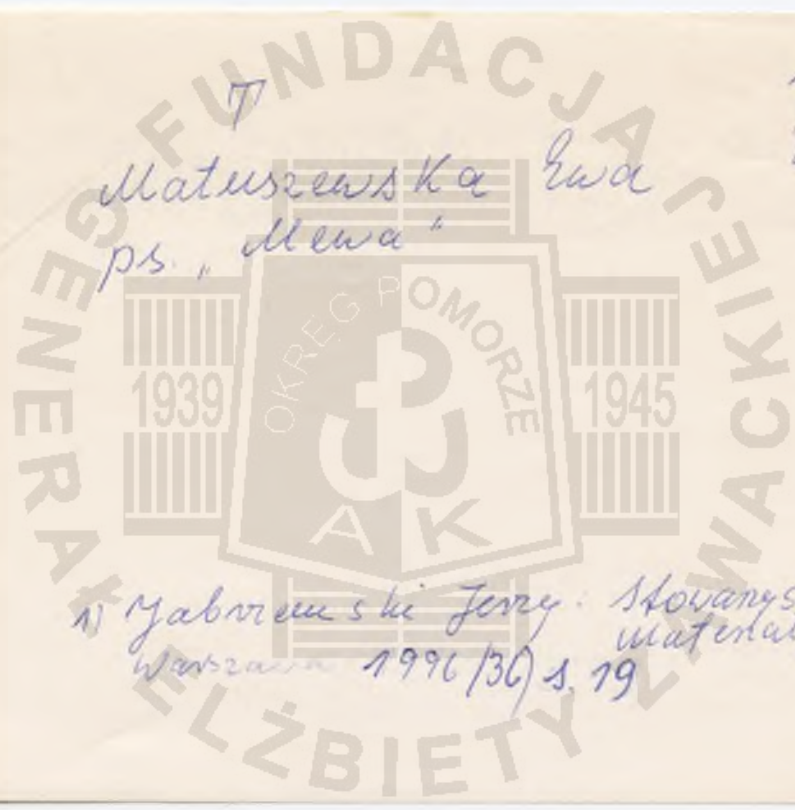 T
Matuszewska Ewa
ps. „Mewa"
1) Jabrzemski Jerzy: Stowarzys
materiał
Warszawa 1996 (36) s. 19
FUNDACJA GENERAŁ ELŻBIETY ZAWACKIEJ
OKRĘG POMORZE
1939
1945
AK